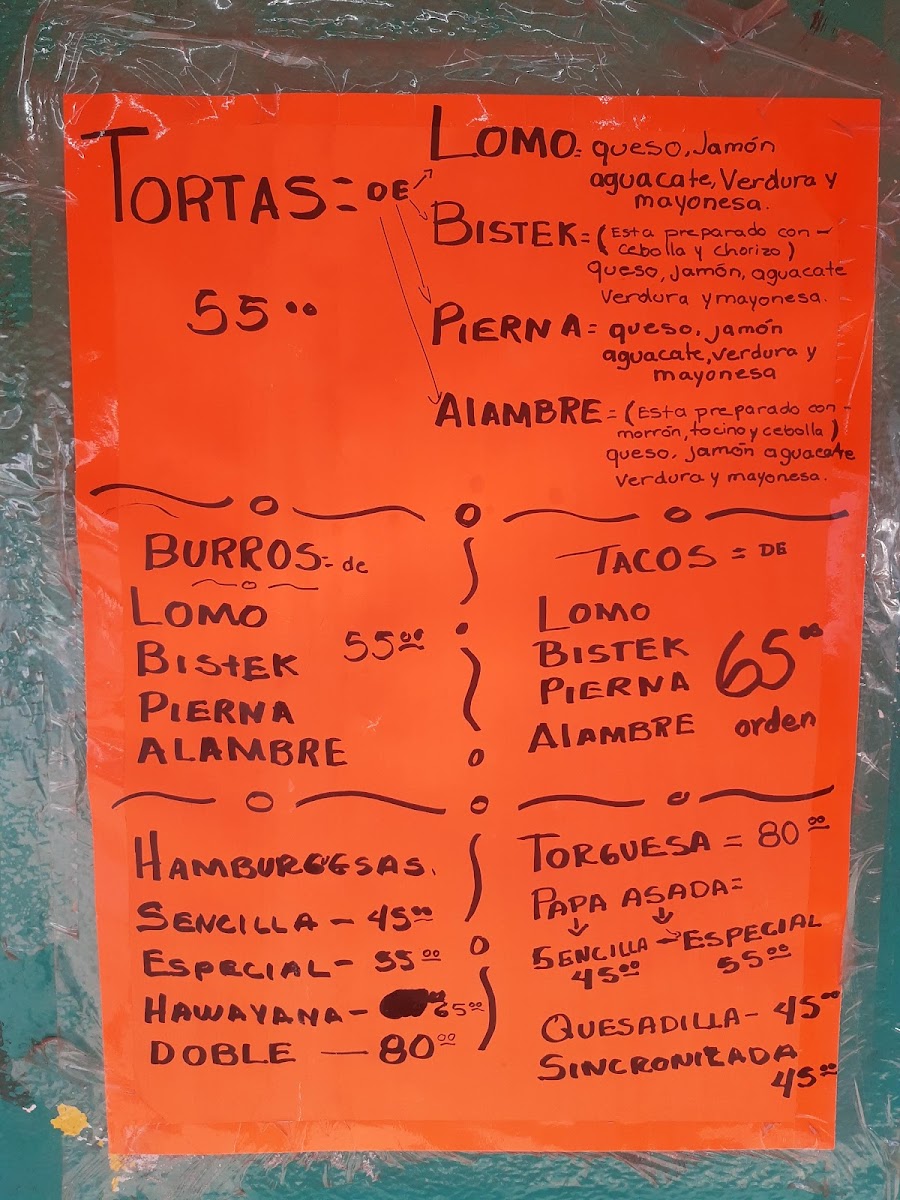 TORTAS = DE
55.00
LOMO = queso, Jamón
aguacate, Verdura y
mayonesa.
BISTEK = (Esta preparado con -
cebolla y chorizo)
queso, jamón, aguacate
Verdura y mayonesa.
PIERNA = queso, jamón
aguacate, verdura y
mayonesa
AlAMBRE = (Esta preparado con -
morrón, tocino y cebolla)
queso, jamón aguacate
Verdura y mayonesa.
BURROS = de
LOMO
BistEK
PIERNA
ALAMBRE
55.00
TACOS = DE
LOMO
BISTEK
PIERNA
AlAMBRE
65.00
orden
HAMBURGESAS.
SENCILLA - 45.00
ESPECIAL - 55.00
HAWAYANA - 65.00
DOBLE - 80.00
TORGUESA = 80.00
PAPA ASADA =
SENCILLA - ESPECIAL
45.00 55.00
QUESADILLA - 45.00
SINCRONIZADA
45.00